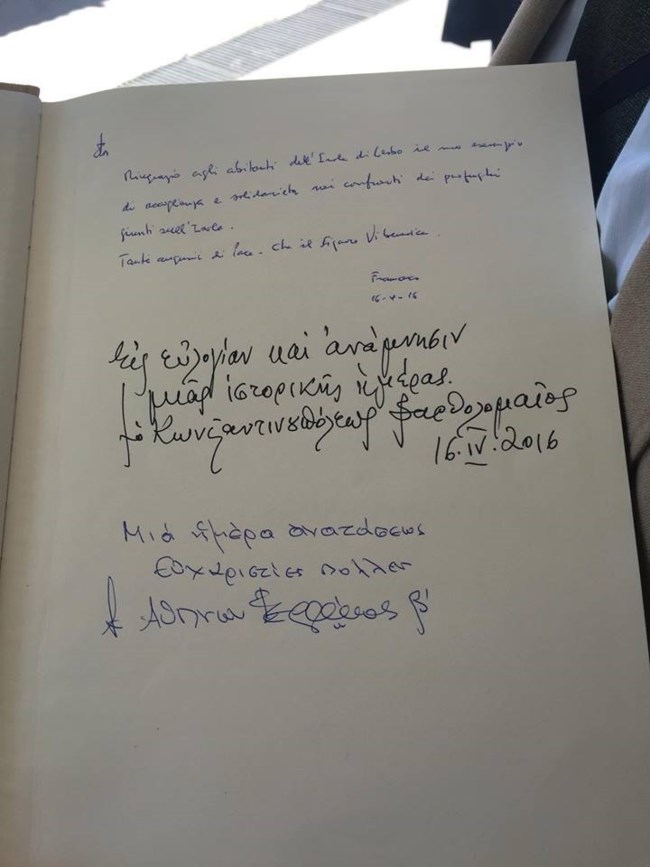 Ringrazio agli abitanti dell'Isola di Lesbo il suo esempio
di accoglienza e solidarietà nei confronti dei profughi
giunti sull'Isola.
Tanti auguri di pace. Che il Signore Vi benedica.
Francesco
16-4-16
Εἰς εὐλογίαν καὶ ἀνάμνησιν
μιᾶς ἱστορικῆς ἡμέρας.
ὁ Κωνσταντινουπόλεως Βαρθολομαῖος
16.IV.2016
Μιά ἡμέρα ανατάσεως
Ευχαριστίες πολλές
Αθηνών β'